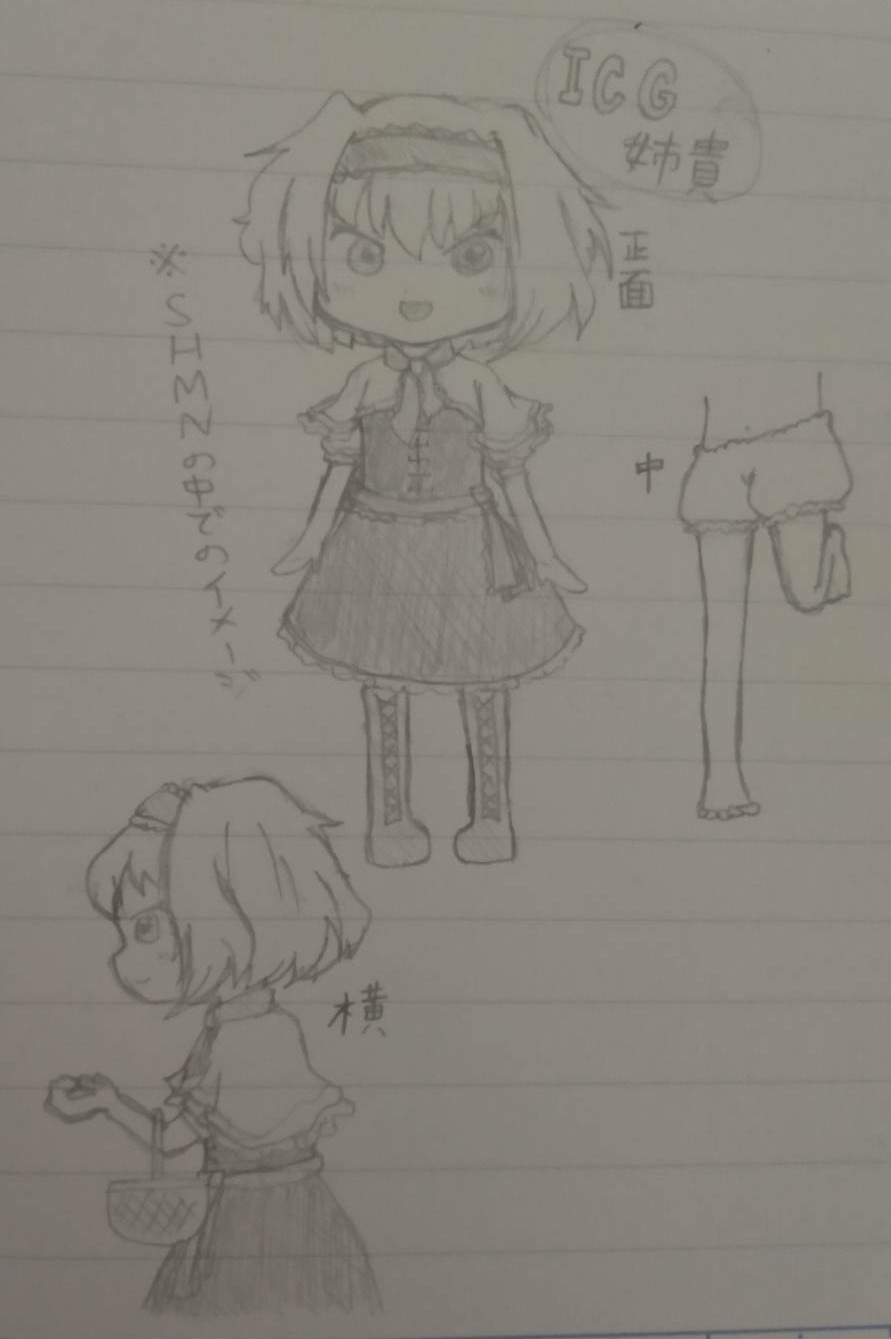 ICG
姉貴
正面
※SHMNの中でのイメージ
中
横